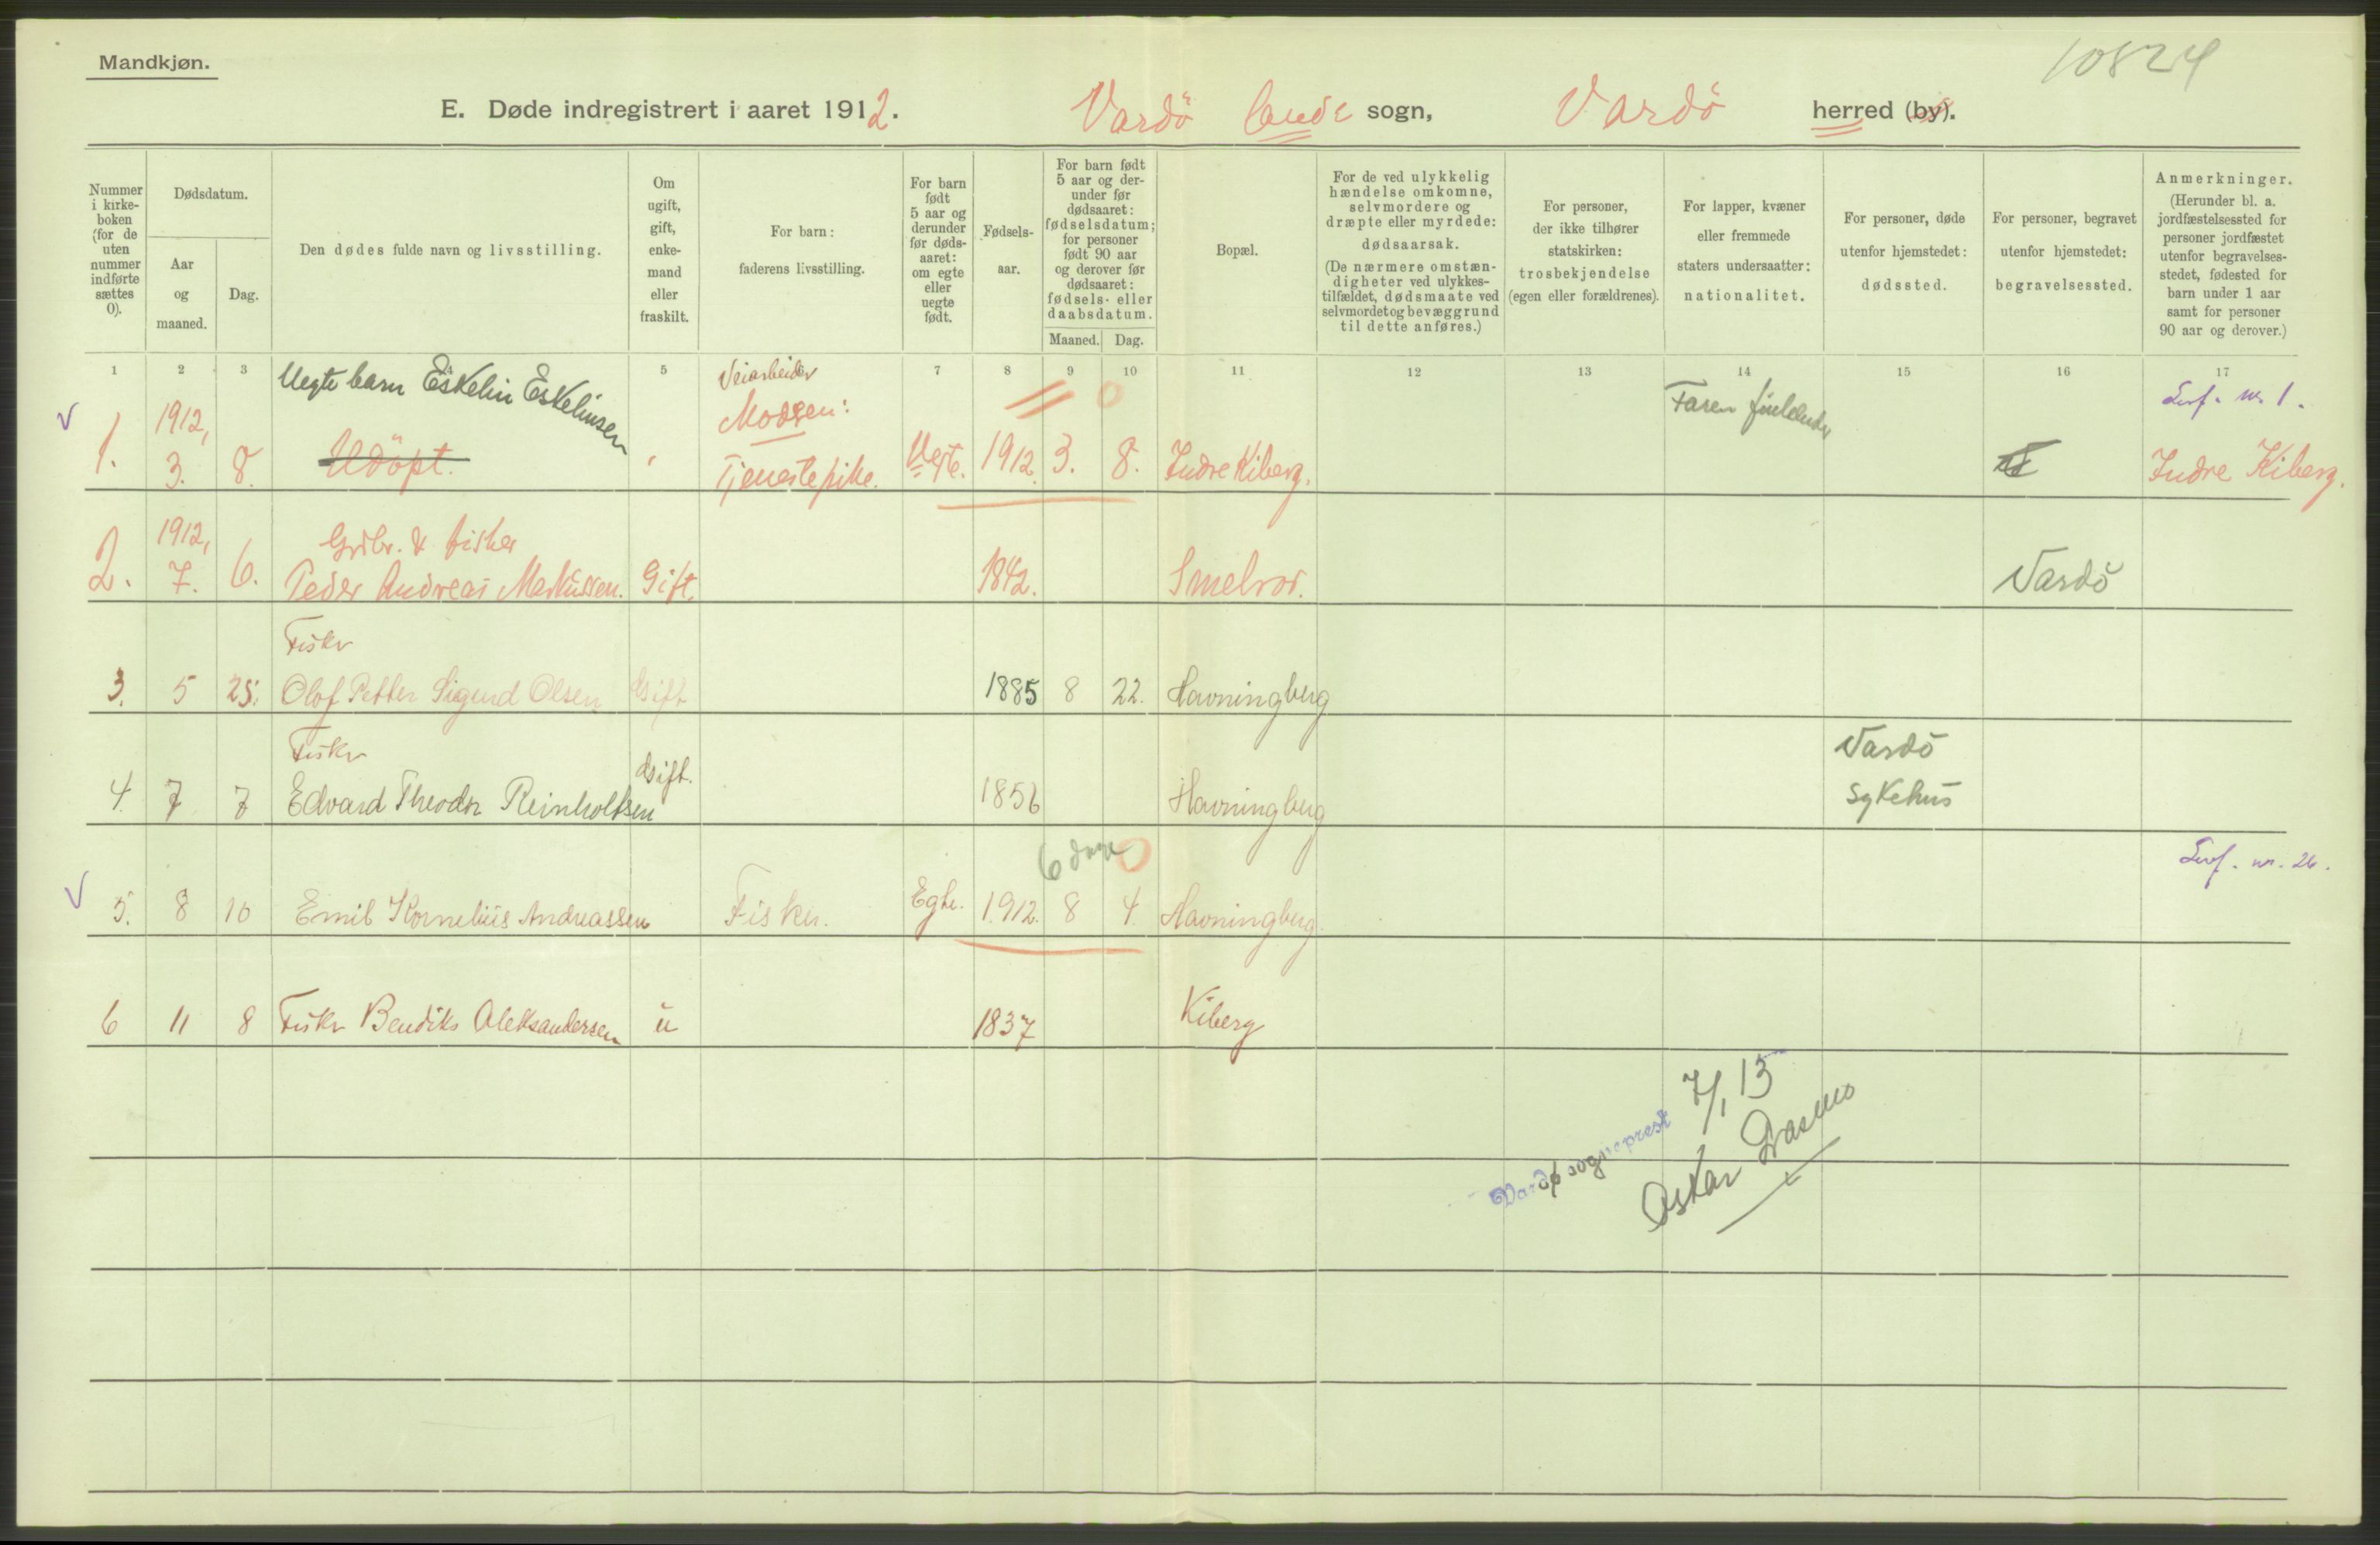 Mandkjøn.
10824
E. Døde indregistrert i aaret 1912. Vardö lands sogn, Vardö herred (by).
Nummer i kirkeboken (for de uten nummer indførte sættes 0).
Dødsdatum.
Aar og maaned.
Dag.
Den dødes fulde navn og livsstilling.
Om ugift, gift, enkemand eller fraskilt.
For barn: faderens livsstilling.
For barn født 5 aar og derunder før dødsaaret: om egte eller uegte født.
Fødselsaar.
For barn født 5 aar og derunder før dødsaaret: fødselsdatum; for personer født 90 aar og derover før dødsaaret: fødsels- eller daabsdatum.
Maaned. Dag.
Bopæl.
For de ved ulykkelig hændelse omkomne, selvmordere og dræpte eller myrdede: dødsaarsak. (De nærmere omstændigheter ved ulykkestilfældet, dødsmaate ved selvmordet og bevæggrund til dette anføres.)
For personer, der ikke tilhører statskirken: trosbekjendelse (egen eller forældrenes).
For lapper, kvæner eller fremmede staters undersaatter: nationalitet.
For personer, døde utenfor hjemstedet: dødssted.
For personer, begravet utenfor hjemstedet: begravelsessted.
Anmerkninger. (Herunder bl. a. jordfæstelsessted for personer jordfæstet utenfor begravelsesstedet, fødested for barn under 1 aar samt for personer 90 aar og derover.)
1 2 3 4 5 7 8 9 10 11 12 13 14 15 16 17
Uegte barn Eskelin Eskelinsen Veiarbeider Faren finlender Levf. nr. 1.
1912, Moderen: 0
1. 3. 8. Udöpt. Tjenestepike. Uegte. 1912. 3. 8. Indre Kiberg. Indre Kiberg.
1912, Grdbr. & fisker
2. 7. 6. Peder Andreas Markussen. Gift. 1842. Smelror. Vardö
Fisker
3. 5 25. Olof Petter Sigurd Olsen Gift 1885 8 22. Havningberg
Fisker Gift. Vardö
4. 7 7 Edvard Theodor Reinholtsen 1856 Havningberg Sykehus
6 dage 0 Levf. nr. 26.
5. 8 10 Emil Kornelius Andreassen Fisker. Egte. 1912. 8 4. Havningberg.
6 11 8 Fisker Bendiks Aleksandersen u 1837 Kiberg
Vardø sogneprest 7/1 13
Oskar